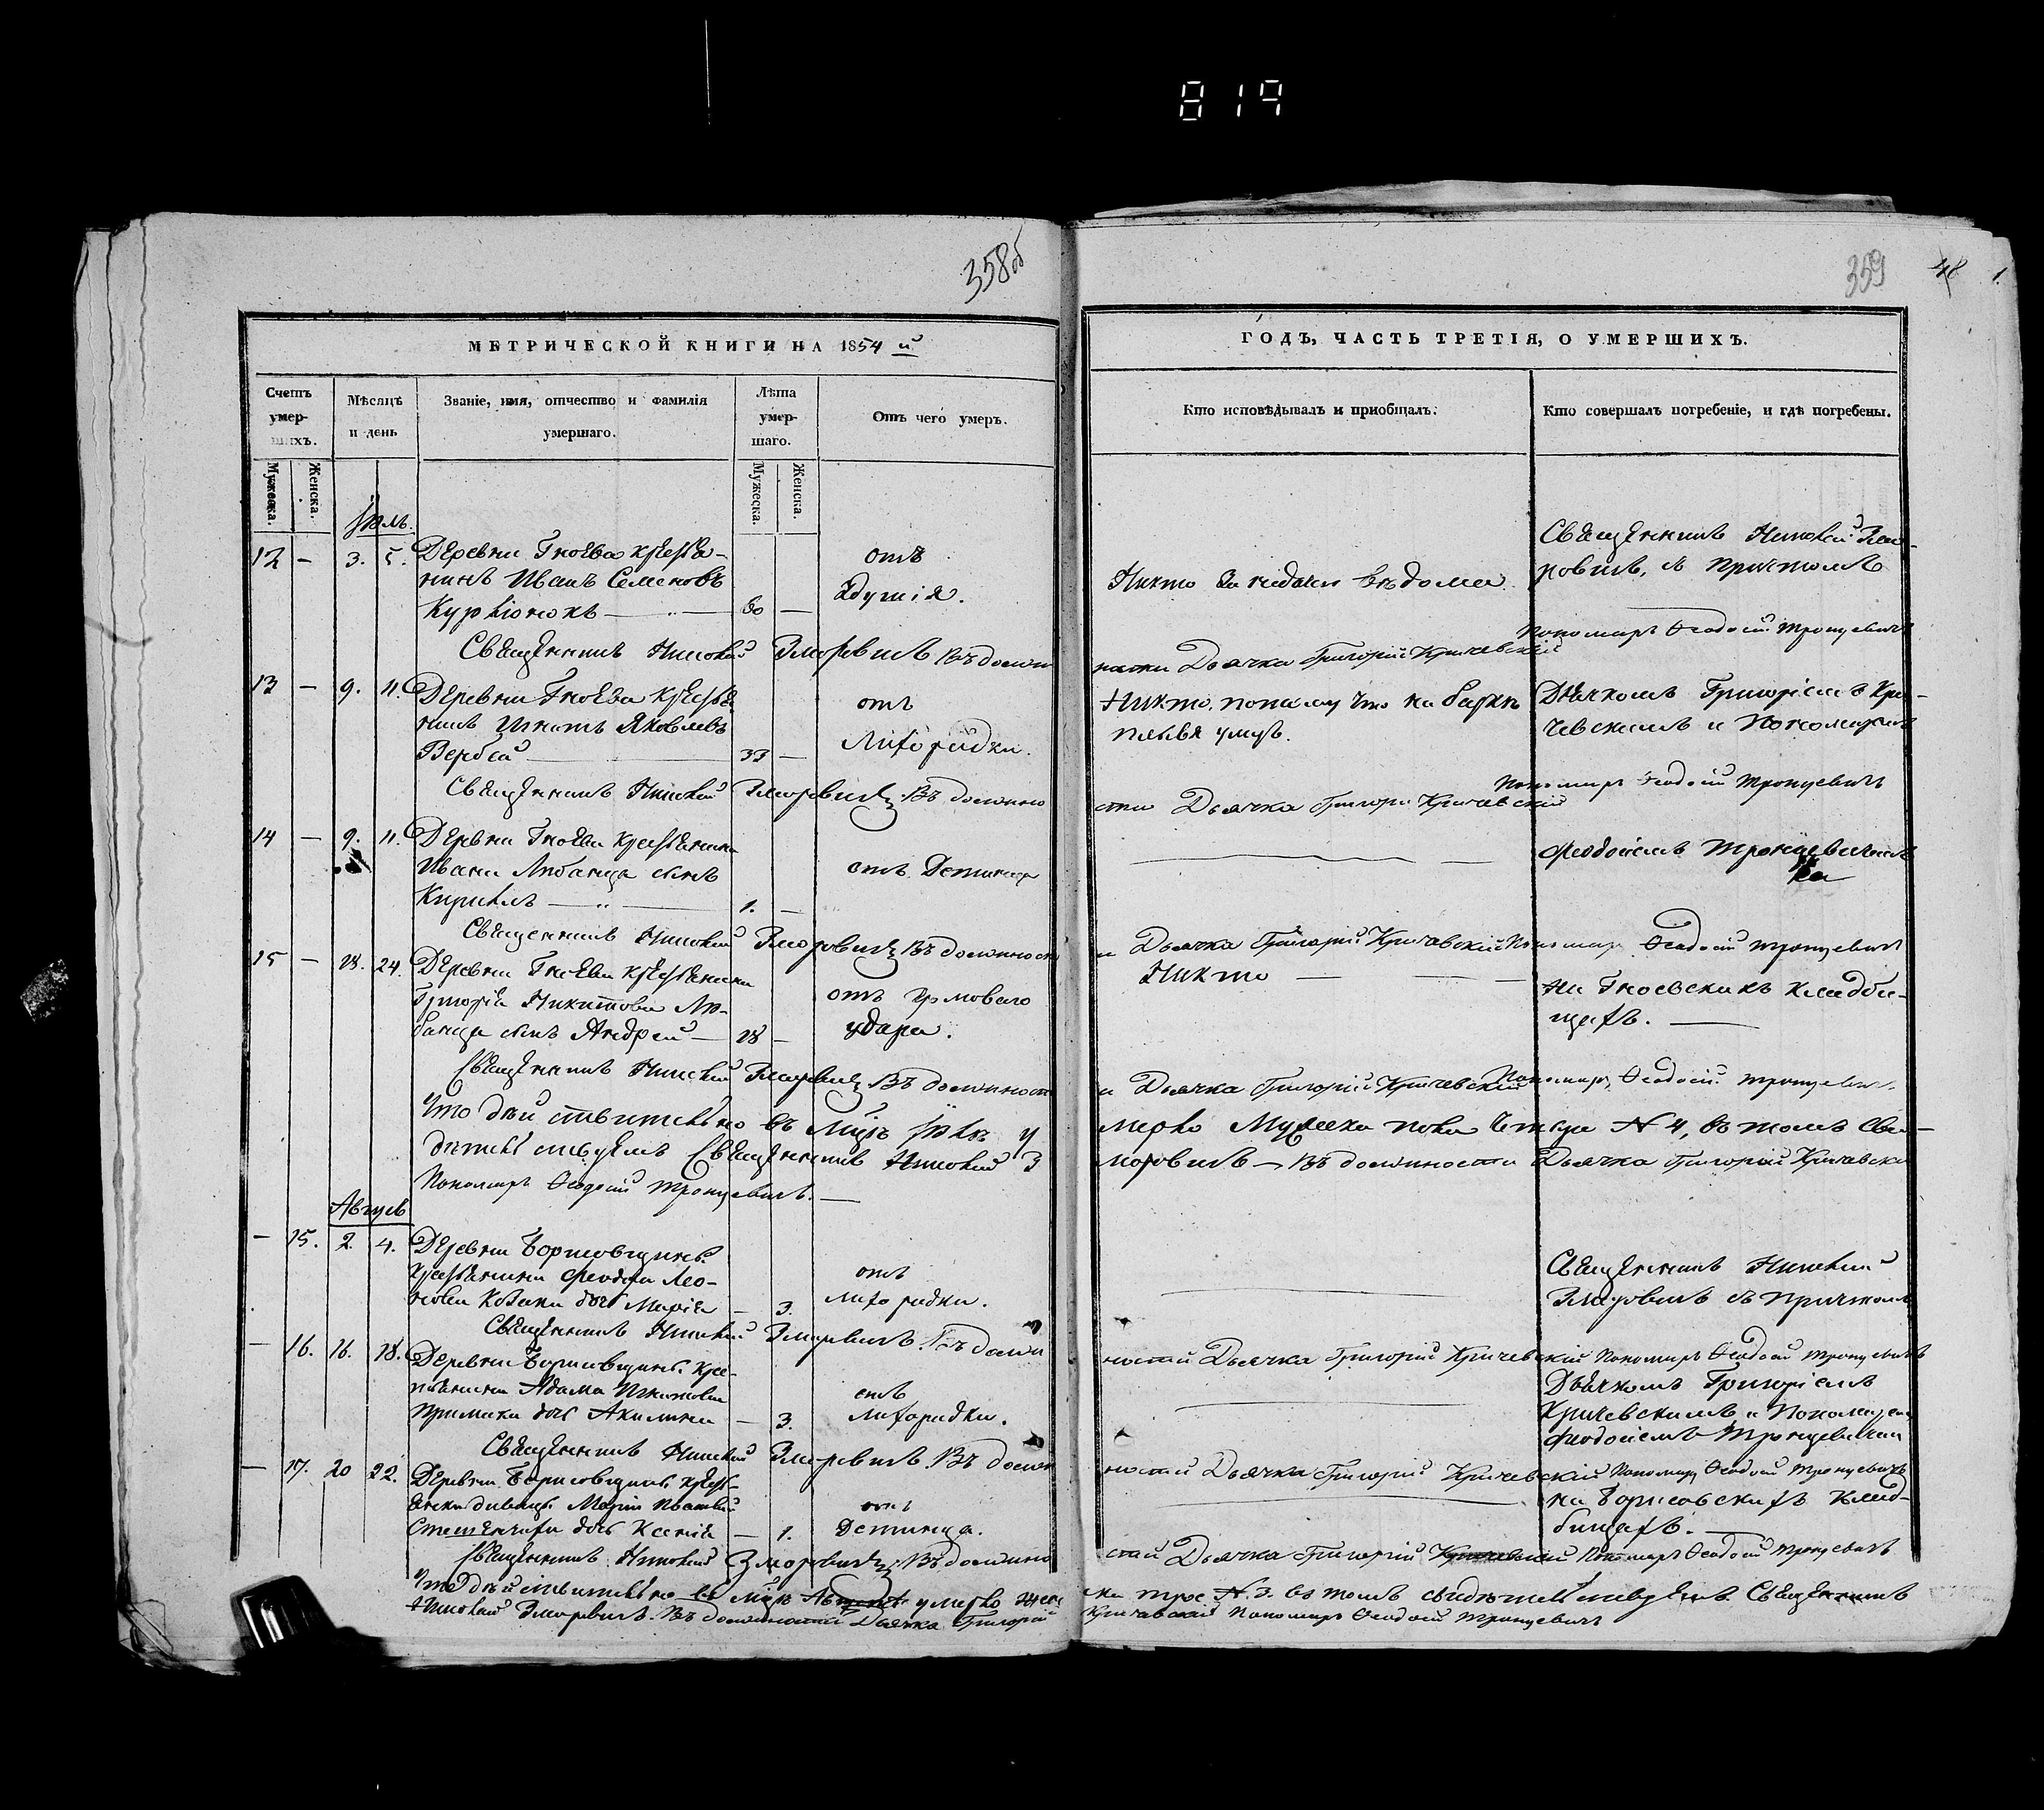 819
358об
359
48
1.
МЕТРИЧЕСКОЙ КНИГИ НА 1854 й
ГОДЪ, ЧАСТЬ ТРЕТІЯ, О УМЕРШИХЪ.
Счетъ умер-шихъ.
Мѣсяцъ и день
Званіе, имя, отчество и фамилія умершаго.
Лѣта умер-шаго.
Отъ чего умеръ.
Кто исповѣдывалъ и приобщалъ.
Кто совершалъ погребеніе, и гдѣ погребены.
Мужеска.
Женска.
Мужеска.
Женска.
Іюль.
12 — 3. 5. Деревни Гноева крестья-
нинъ Иванъ Семеновъ
60 —
отъ
Удушія.
Никто
Священникъ Николай Змо-
ровичъ, съ причтомъ
Священникъ Николай Зморовичъ Въ долж
ности Дьячка Григорій Кричевскій
Пономарь Ѳеодосій Тронцевичъ
13 — 9. 11. Деревни Гноева крестья
нинъ Игнатъ Яковлевъ
Вербей — 33 —
отъ
Лихорадки.
Никто, потому что на баркѣ
плывя умеръ.
Дьячкомъ Григоріемъ Кри-
чевскимъ и Пономаремъ
Священникъ Николай Зморовичъ Въ должно
сти Дьячка Григорій Кричевскій
Пономарь Ѳеодосій Тронцевичъ
14 — 9. 11. Деревни Гноева крестьянина
Ивана Любанца сынъ
Кирилъ — 1. —
отъ Детинца
Феодосіемъ Тронцевичемъ
Священникъ Николай Зморовичъ Въ должност
и Дьячка Григорій Кричевскій Пономарь Ѳеодосій Тронцевичъ
15 — 24. Деревни Гноева крестьянина
Григорія Никитова Лю-
банца сынъ Андрей — 18 —
отъ громоваго
удара.
Никто —
На Гноевскихъ кладби-
щахъ. —
Священникъ Николай Зморовичъ Въ должност
и Дьячка Григорій Кричевскій Пономарь Ѳеодосій Тронцевичъ
Что дѣйствительно въ Іюлѣ у
мерло Мужеска пола четыре N 4, въ томъ сви-
дѣтельствуемъ Священникъ Николай З
моровичъ — Въ должности Дьячка Григорій Кричевскі
Пономарь Ѳеодосій Тронцевичъ. —
Август
— 15. 2. 4. Деревни Борисовщины
крестьянина Феодора Лео-
нова Козака дочь Марія — 3.
отъ
лихорадки.
Священникъ Николай
Зморовичъ съ причтомъ
Священникъ Николай Зморовичъ. Въ долж
ности Дьячка Григорій Кричевскій Пономарь Ѳеодосій Тронцевичъ
— 16. 16. 18. Деревни Борисовщины кре-
стьянина Адама
Примака дочь Акилина — 3.
отъ
лихорадки.
Дьячкомъ Григоріемъ
Кричевскимъ и Пономаремъ
Феодосіемъ Тронцевичемъ
Священникъ Николай Зморовичъ. Въ долж
ности Дьячка Григорій Кричевскій Пономарь Ѳеодосій Тронцевичъ
— 17. 20 22. Деревни Борисовщины крест-
янки дивицы Маріи
дочь Ксенія — 1.
отъ
Детинца.
на Борисовскихъ клад-
бищахъ. —
Священникъ Николай Зморовичъ Въ должно
сти Дьячка Григорій Кричевскій Пономарь Ѳеодосій Тронцевичъ
Что дѣйствительно въ Августѣ умерло жен
ска трое N. 3. въ томъ свидѣтельствуемъ. Священникъ
Николай Зморовичъ. Въ должности Дьячка Григорій
Кричевскій Пономарь Ѳеодосій Тронцевичъ